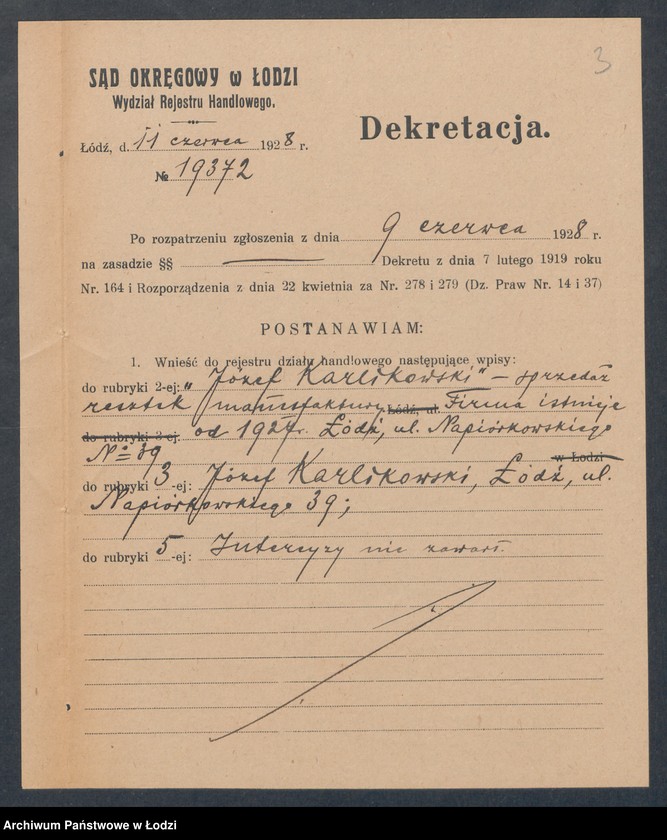 3
SĄD OKRĘGOWY w ŁODZI
Wydział Rejestru Handlowego.
Dekretacja.
Łódź, d. 11 czerwca 1928 r.
№ 19372
Po rozpatrzeniu zgłoszenia z dnia 9 czerwca 1928 r.
na zasadzie §§ — Dekretu z dnia 7 lutego 1919 roku
Nr. 164 i Rozporządzenia z dnia 22 kwietnia za Nr. 278 i 279 (Dz. Praw Nr. 14 i 37)
POSTANAWIAM:
1. Wnieść do rejestru działu handlowego następujące wpisy:
do rubryki 2-ej: „Józef Karlikowski" – sprzedaż
resztek manufaktury. Łódź, ul. Firma istnieje
do rubryki 3-ej: od 1927 r. Łódź, ul. Napiórkowskiego
№ 39 w Łodzi
do rubryki 3-ej: Józef Karlikowski, Łódź, ul.
Napiórkowskiego 39;
do rubryki 5-ej: Intercyzy nie zawarł.
Archiwum Państwowe w Łodzi